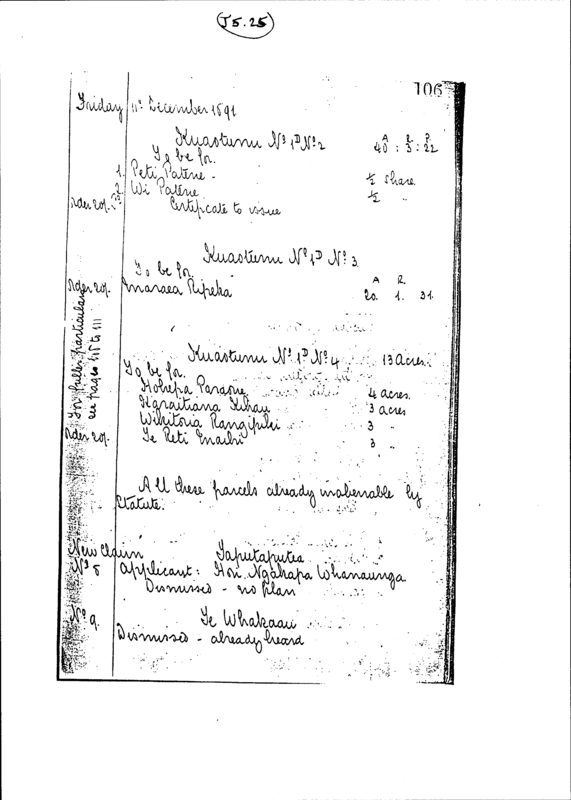 J5.25
106
Friday 11th December 1891
Kuaotunu No 1D No 2
A R P
40 : 3 : 22
To be for
1. Peti Patene - ½ share
2. Wi Patene ½ "
Order 20/- Certificate to issue
Kuaotunu No 1D No 3
To be for
A R
Order 20/- Maraea Ripeka 20. 1. 31.
For fuller particulars
see pages 115 to 111
Kuaotunu No 1D No 4 13 acres.
To be for
Hohepa Paraone 4 acres.
Haraitiana Kihau 3 acres
Wikitoria Rangipiki 3 "
Order 20/- Te Reti 3 "
All these parcels already inalienable by
Statute.
New Claim Taputaputea
No 8 Applicant: Hori Ngakapa Whanaunga
Dismissed - no plan
No 9. Te Whakaau
Dismissed - already heard